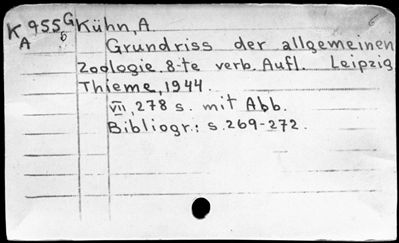 K 955 G Kühn, A 6
A 6
Grundriss der allgemeinen
Zoologie. 8-te verb. Aufl. Leipzig,
Thieme, 1944.
VII, 278 s. mit Abb.
Bibliogr.: s. 269-272.